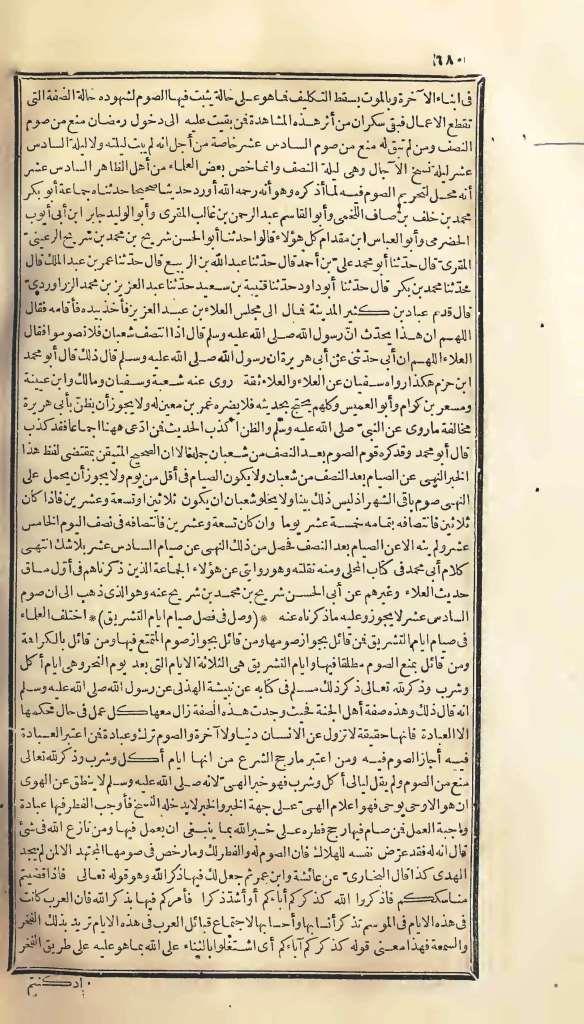 ٦٨٠
فى ابناء الآخرة وبالموت يسقط التكليف فما هو على حالة يثبت فيها الصوم لشهوده حالة الصفة التى
تقطع الاعمال فبقى سكران من أثر هذه المشاهدة فمن بقيت عليه الى دخول رمضان منع من صوم
النصف ومن لم تبق له منع من صوم السادس عشر خاصة من أجل انه لم يبت ليلته ولا ليلة السادس
عشر ليلة نسخ الآجال وهى ليلة النصف وانما خص بعض العلماء من أهل الظاهر السادس عشر
أنه محل لتحريم الصوم فيه لما أذكره وهو أنه رحمه الله أورد حديثا صحيحا حدثناه جماعة أبو بكر
محمد بن خلف بن صاف اللخمى وأبو القاسم عبد الرحمن بن غالب المقرى وأبو الوليد جابر ابن أبى أيوب
الحضرمى وأبو العباس ابن مقدام كل هؤلاء قالوا حدثنا أبو الحسن شريح بن محمد بن شريح الرعينى
المقرى قال حدثنا أبو محمد على بن أحمد قال حدثنا عبد الله بن الربيع قال حدثنا عمر بن عبد الملك قال
حدثنا محمد بن بكر قال حدثنا أبو داود حدثنا قتيبة بن سعيد حدثنا عبد العزيز بن محمد الدراوردى
قال قدم عباد بن كثير المدينة فمال الى مجلس العلاء بن عبد العزيز فأخذ بيده فأقامه فقال
اللهم ان هذا يحدث ان رسول الله صلى الله عليه وسلم قال اذا انتصف شعبان فلا تصوموا فقال
العلاء اللهم ان أبى حدثنى عن أبى هريرة ان رسول الله صلى الله عليه وسلم قال ذلك قال أبو محمد
ابن حزم هكذا رواه سفيان عن العلاء والعلاء ثقة روى عنه شعبة وسفيان ومالك وابن عيينة
ومسعر بن كدام وأبو العميس وكلهم يحتج بحديثه فلا يضره غمز بن معين له ولا يجوز أن يظن بأبى هريرة
مخالفة ما روى عن النبى صلى الله عليه وسلم والظن أكذب الحديث فمن ادعى ههنا اجماعا فقد كذب
قال أبو محمد وقد كره قوم الصوم بعد النصف من شعبان جملة الا ان الصحيح المتيقن بمقتضى لفظ هذا
الخبر النهى عن الصيام بعد النصف من شعبان ولا يكون الصيام فى أقل من يوم ولا يجوز أن يحمل على
النهى صوم باقى الشهر اذ ليس ذلك بينا ولا يخلو شعبان ان يكون ثلاثين او تسعة وعشرين فاذا كان
ثلاثين فانتصافه بتمامه خمسة عشر يوما وان كان تسعة وعشرين فانتصافه فى نصف اليوم الخامس
عشر ولم ينه الا عن الصيام بعد النصف فحصل من ذلك النهى عن صيام السادس عشر بلا شك انتهى
كلام أبى محمد فى كتاب المحلى ومنه نقلته وهو روايتى عن هؤلاء الجماعة الذين ذكرناهم فى أول مساق
حديث العلاء وغيرهم عن أبى الحسن شريح بن محمد بن شريح عنه وهو الذى ذهب الى ان صوم
السادس عشر لا يجوز وعليه ما ذكرناه عنه *(وصل فى فصل صيام ايام التشريق)* اختلف العلماء
فى صيام ايام التشريق فمن قائل بجواز صومها ومن قائل بجواز صوم المتمتع فيها ومن قائل بالكراهة
ومن قائل بمنع الصوم مطلقا فيها وايام التشريق هى الثلاثة الايام التى بعد يوم النحر وهى ايام أكل
وشرب وذكر لله تعالى ذكر ذلك مسلم فى كتابه عن نبيشة الهذلى عن رسول الله صلى الله عليه وسلم
انه قال ذلك وهذه صفة أهل الجنة فحيث وجدت هذه الصفة زال معها كل عمل فى حال تحكمها
الا العبادة فانها حقيقة لا تزول عن الانسان دنيا ولا آخرة والصوم ترك وعبادة فمن اعتبر العبادة
فيه أجاز الصوم فيه ومن اعتبر ما رجح الشرع من انها ايام أكل وشرب وذكر لله تعالى
منع من الصوم ولم يقل ليالى أكل وشرب فهو خبر الهى لانه صلى الله عليه وسلم لا ينطق عن الهوى
ان هو الا وحى يوحى فهو اعلام الهى على جهة الخبر والخبر لا يدخله النسخ فأوجب الفطر فيها عبادة
واجبة العمل فمن صام فيها رجح فطره على خبر الله بما ينبغى ان يعمل فيها ومن نازع الله فى شئ
قال انه له فقد عرّض نفسه للهلاك فان الصوم له والفطر لك وما رخص فى صومها المجتهد الا لمن لم يجد
الهدى كذا قال البخارى عن عائشة وابن عمر ثم جعل لك فيها ذكر الله وهو قوله تعالى فاذا قضيتم
مناسككم فاذكروا الله كذكركم آباءكم أو أشد ذكرا فأمركم فيها بذكر الله فان العرب كانت
فى هذه الايام فى الموسم تذكر أنسابها وأحسابها لاجتماع قبائل العرب فى هذه الايام تريد بذلك الفخر
والسمعة فهذا معنى قوله كذكركم آباءكم أى اشتغلوا بالثناء على الله بما هو عليه على طريق الفخر
اذ كنتم